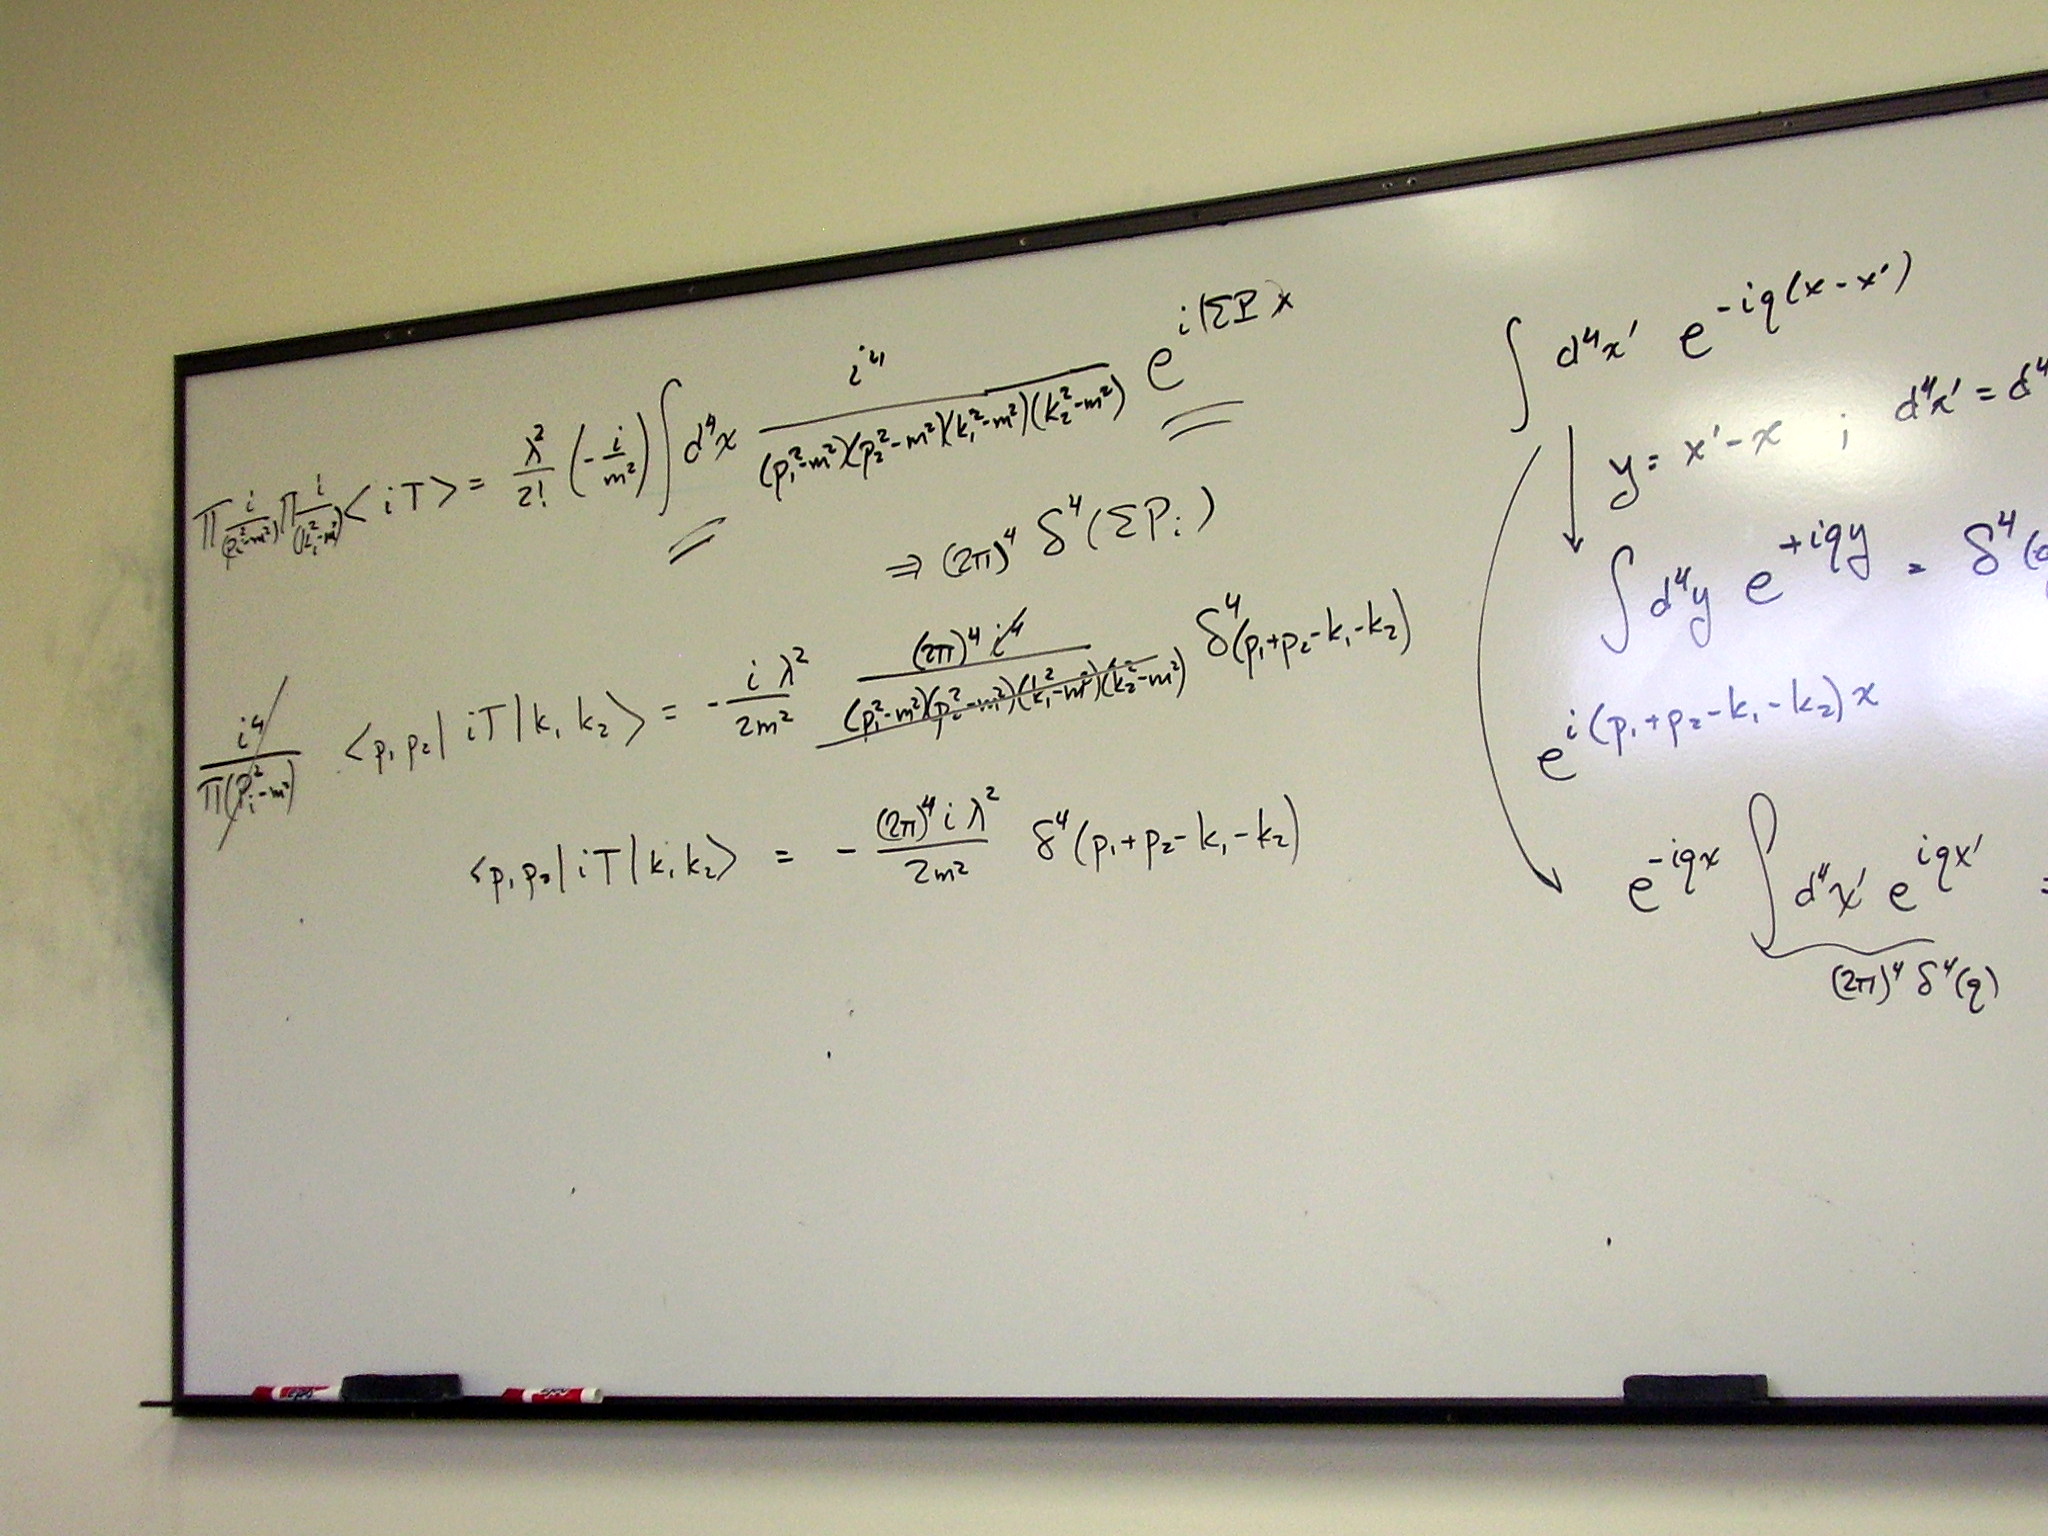 ∏ i/(p_i²-m²) ∏ i/(k_i²-m²) < iT > = λ²/2! (-i/m²) ∫ d⁴x i⁴/((p₁²-m²)(p₂²-m²)(k₁²-m²)(k₂²-m²)) e^{i(ΣP)x}
⇒ (2π)⁴ δ⁴(ΣP_i)
i⁴/π(P_i²-m²) <p₁p₂|iT|k₁k₂> = - iλ²/2m² (2π)⁴i⁴/((p₁²-m²)(p₂²-m²)(k₁²-m²)(k₂²-m²)) δ⁴(p₁+p₂-k₁-k₂)
<p₁p₂|iT|k₁k₂> = - (2π)⁴iλ²/2m² δ⁴(p₁+p₂-k₁-k₂)
∫ d⁴x' e^{-iq(x-x')}
y = x'-x ; d⁴x' = d⁴
∫ d⁴y e^{+iqy} = δ⁴(
e^{i(p₁+p₂-k₁-k₂)x}
e^{-iqx} ∫ d⁴x' e^{iqx'} =
(2π)⁴ δ⁴(q)